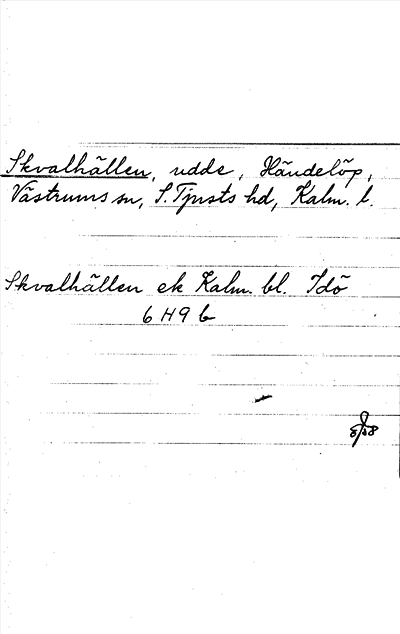 Skvalhällen, udde, Händelöp,
Västrums sn, S. Tjusts hd, Kalm. l.
Skvalhällen ek Kalm. bl. Idö
6 H 9 b